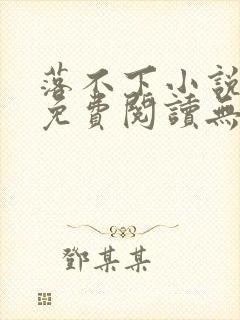 落不下小說
免費閱讀無
鄧某某